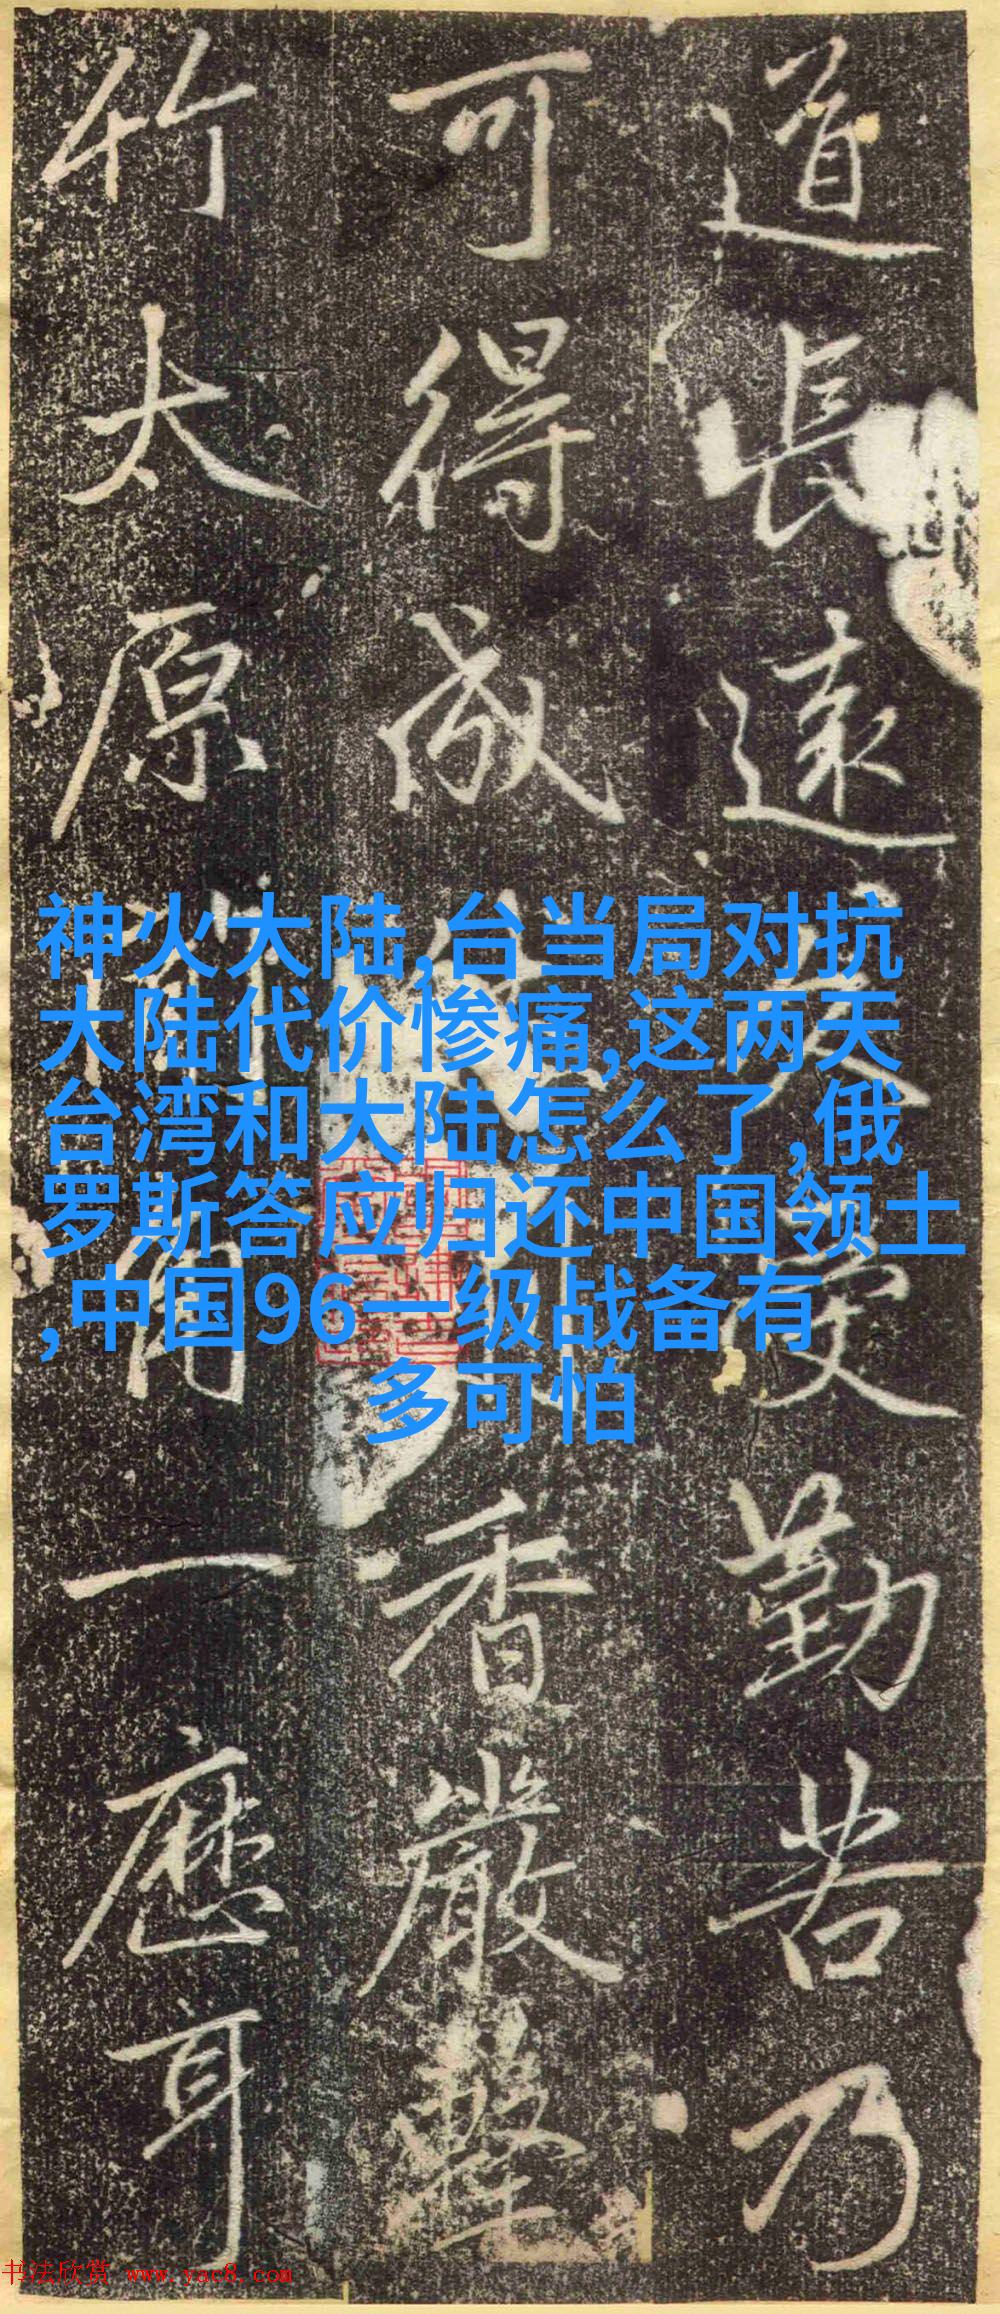 道長遠
受勤苦乃
可得成
香嚴擊
竹太原
一應耳
神火大陆,台当局对抗
大陆代价惨痛,这两天
台湾和大陆怎么了,俄
罗斯答应归还中国领土
,中国96一级战备有
多可怕
书法欣赏 www.yac8.com